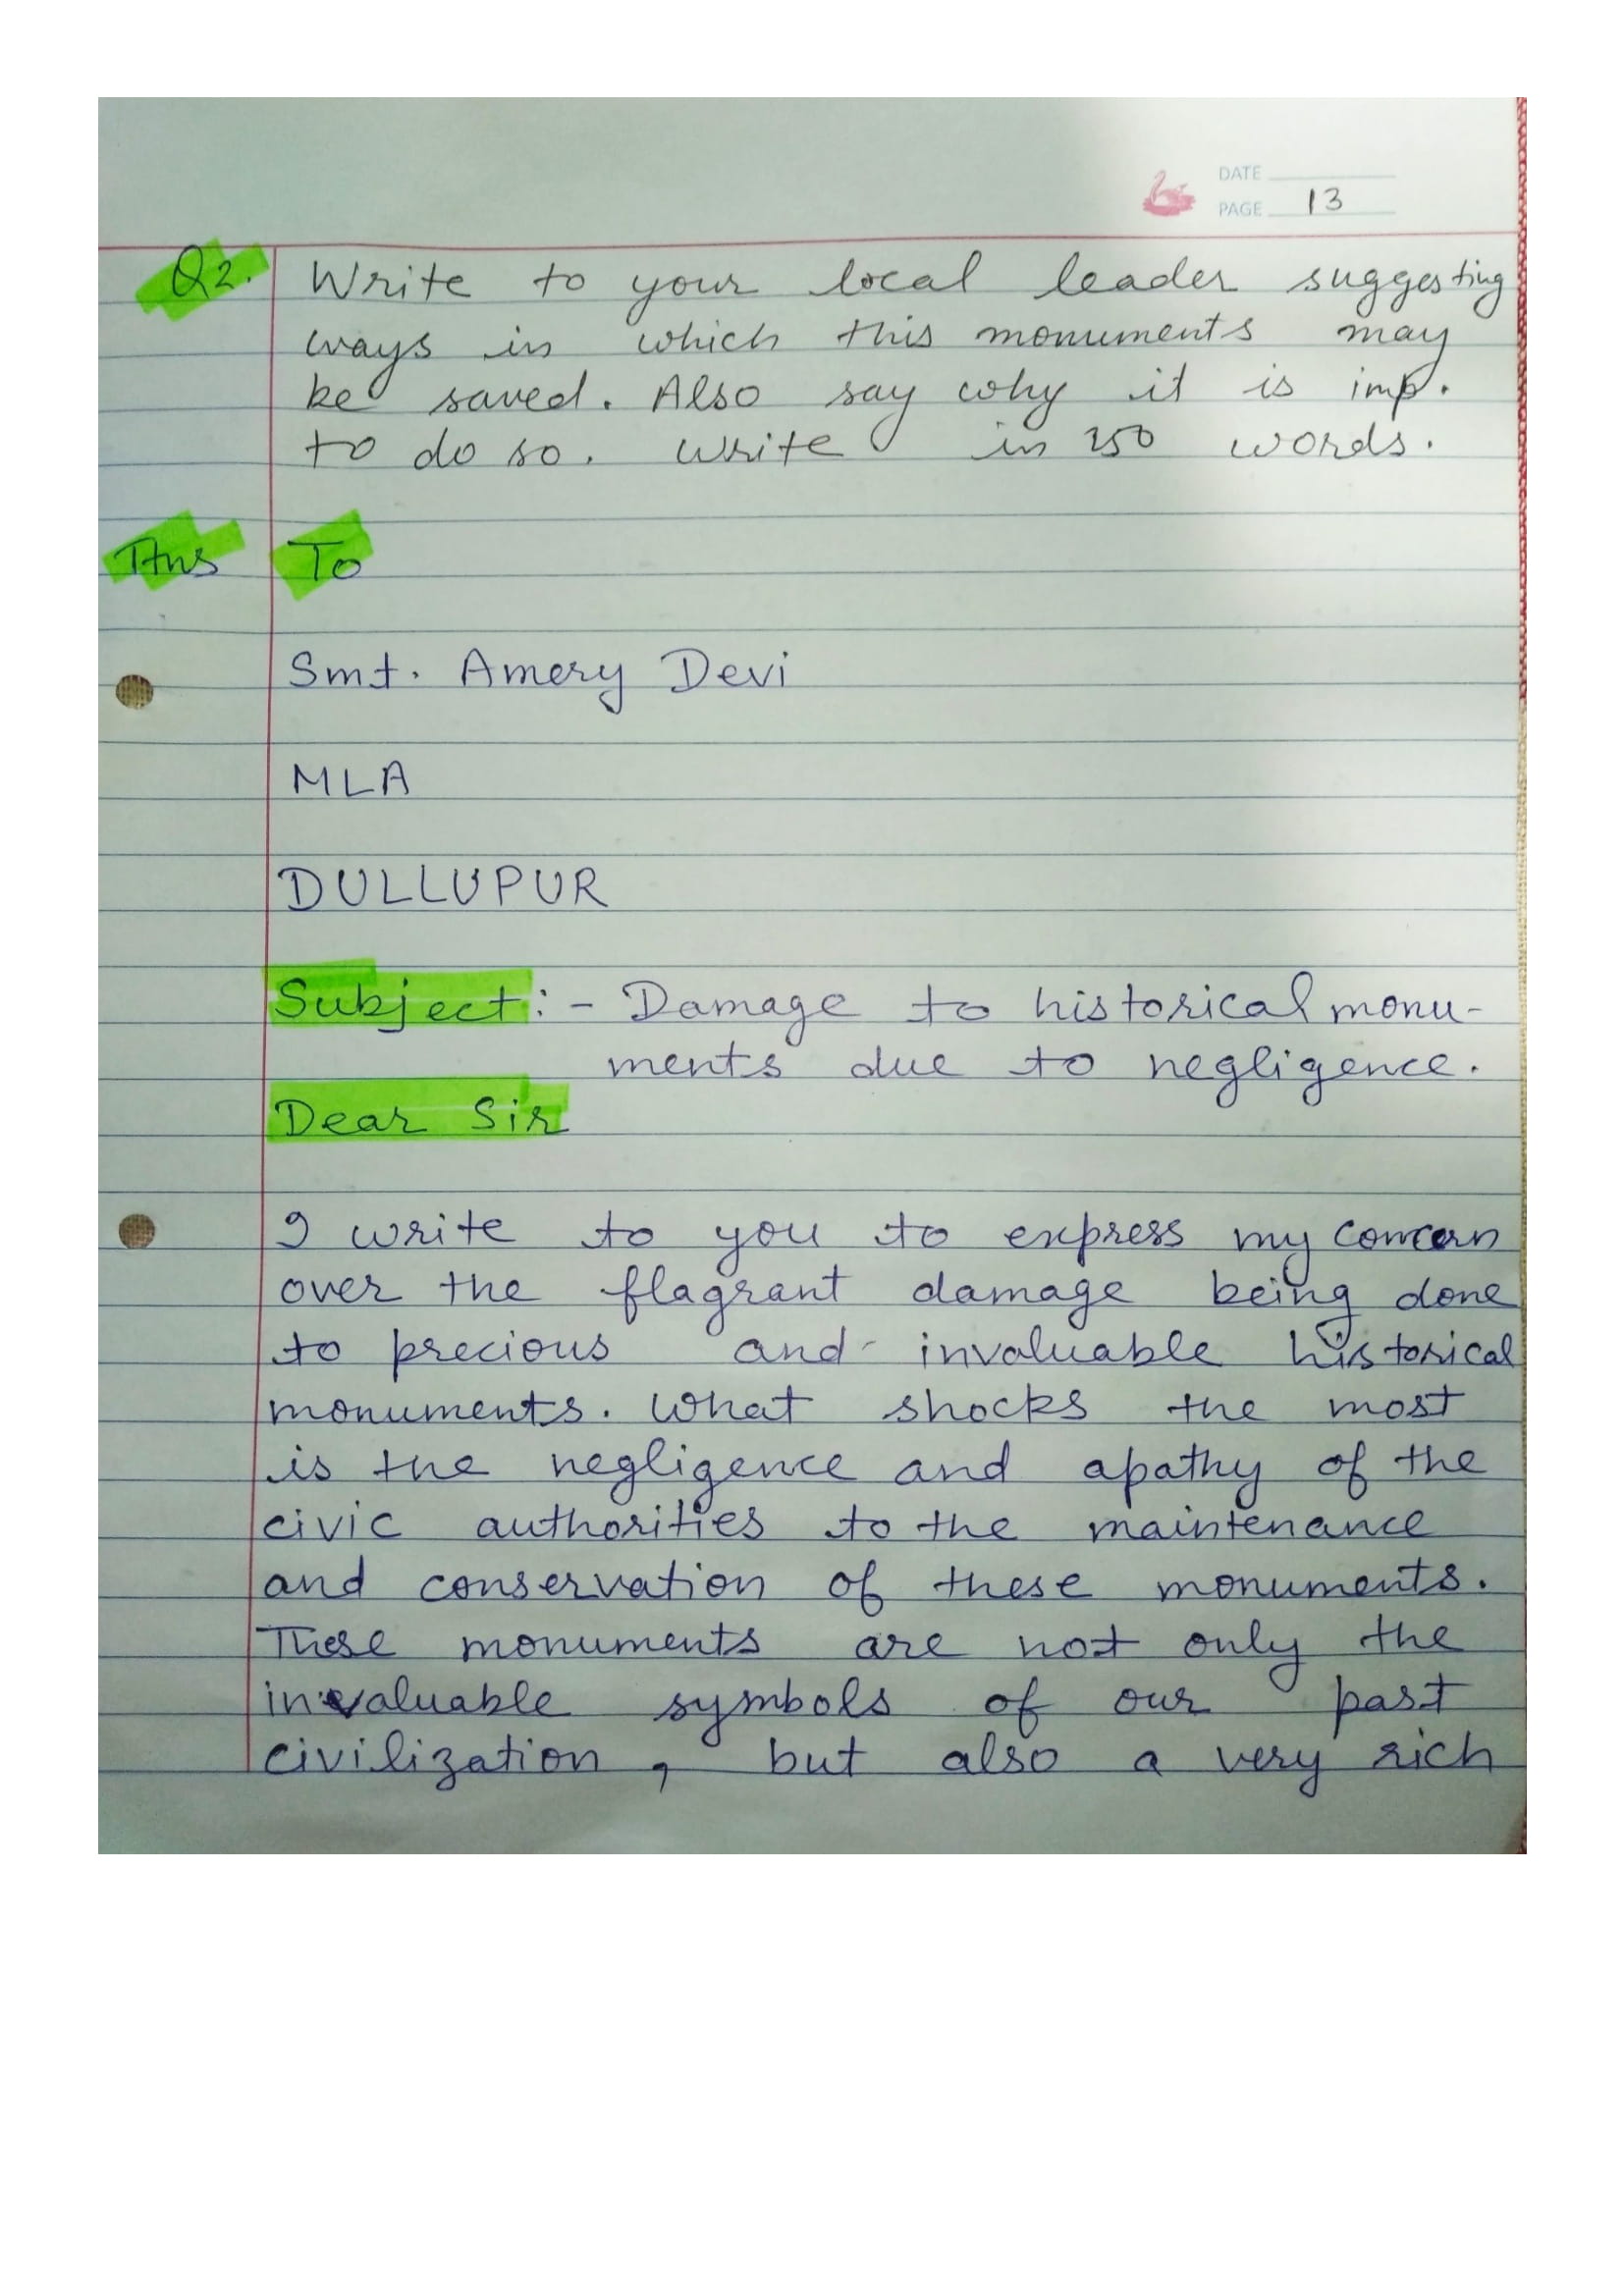 DATE
PAGE 13
Q2. Write to your local leader suggesting
ways in which this monuments may
be saved. Also say why it is imp.
to do so. Write in 250 words.
Ans To
Smt. Amery Devi
MLA
DULLUPUR
Subject:- Damage to historical monu-
ments due to negligence.
Dear Sir
I write to you to express my concern
over the flagrant damage being done
to precious and invaluable historical
monuments. What shocks the most
is the negligence and apathy of the
civic authorities to the maintenance
and conservation of these monuments.
These monuments are not only the
invaluable symbols of our past
civilization, but also a very rich